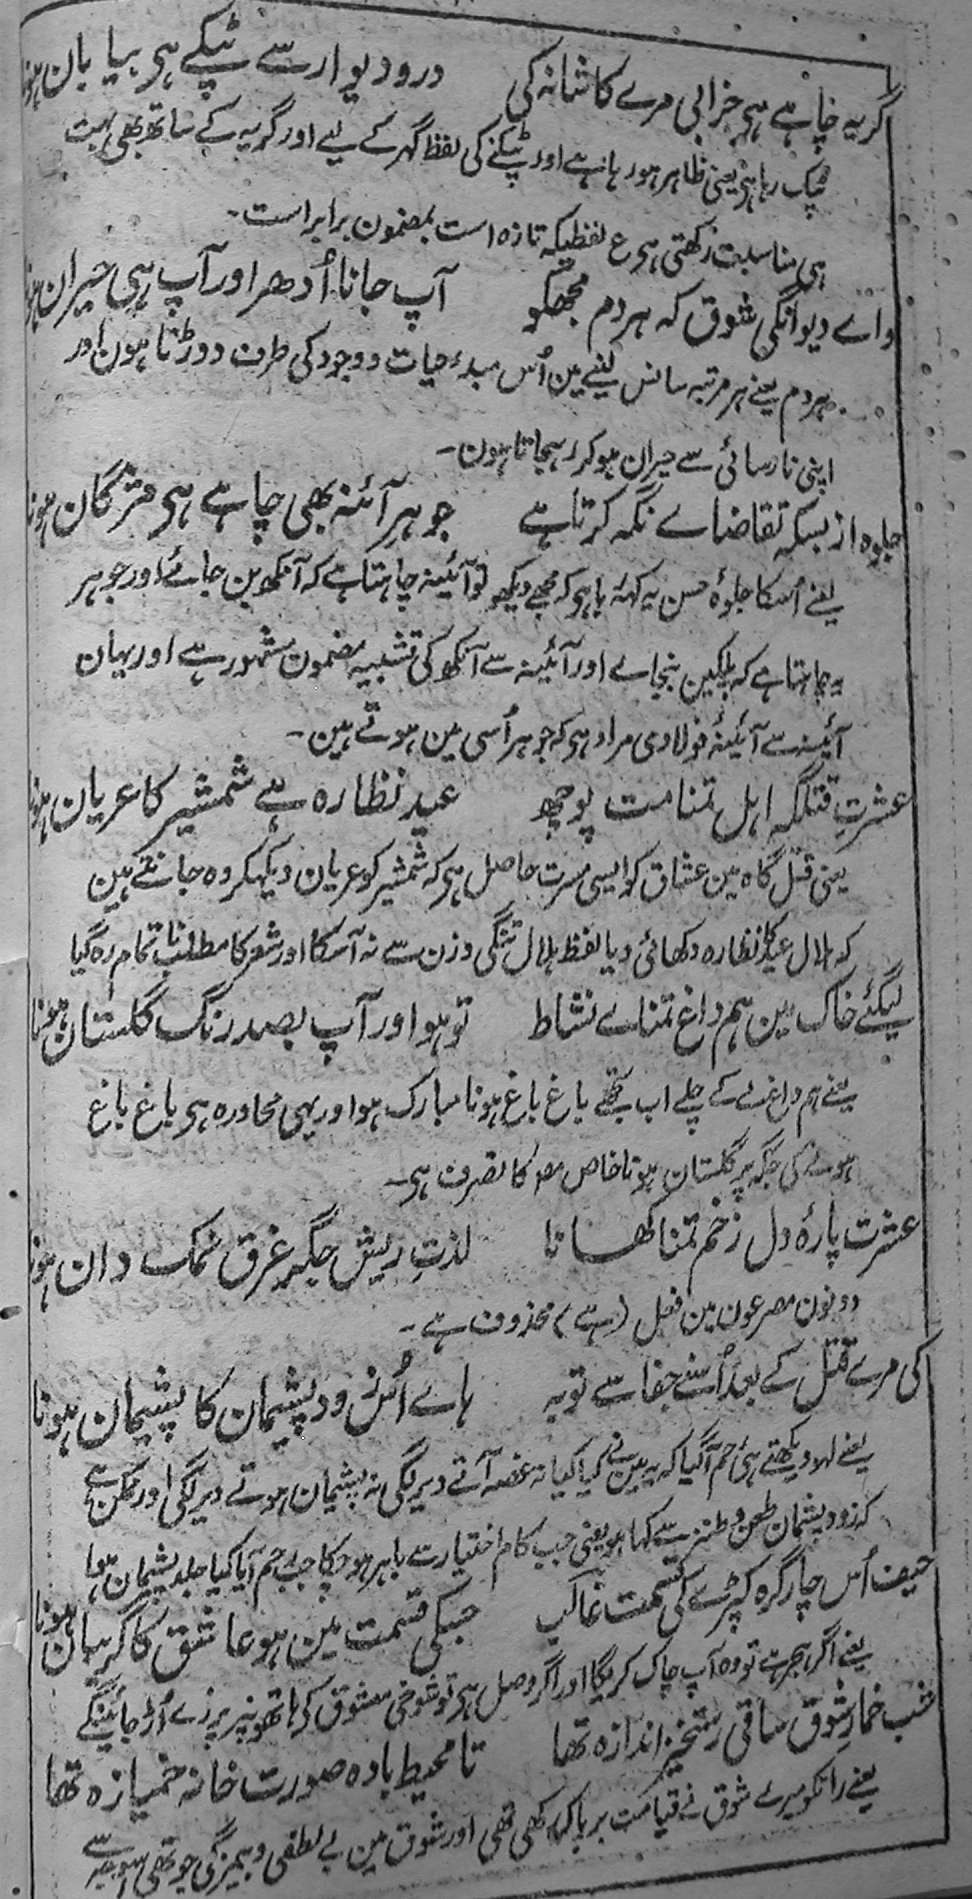 گریہ چاہے ہی خرابی مرے کاشانہ کی درودیوار سے ٹپکے ہی بیابان ہونا
ٹپک رہا ہی یعنی ظاہر ہو رہا ہے اور ٹپکنے کی لفظ گھر کے لیے اور گریہ کے ساتھ بھی بہت
ہی مناسبت رکھتی ہی ع لفظیکہ تازہ است بمضمون برابر است۔
واے دیوانگی شوق کہ ہر دم مجھکو آپ جانا اُدھر اور آپ ہی حیران ہونا
ہر دم یعنے ہر مرتبہ سانس لینے مین اُس مبدء حیات و وجود کی طرف دوڑتا ہون اور
اپنی نارسائی سے حیران ہوکر رہجاتا ہون۔
جلوہ ازبسکہ تقاضاے نگہ کرتا ہے جوہرِ آئنہ بھی چاہے ہی مژگان ہونا
یعنے اُسکا جلوۂ حسن یہ کہہ رہا ہی کہ مجھے دیکھو تو آئینہ چاہتا ہے کہ آنکھ بن جائے اور جوہر
یہ چاہتا ہے کہ پلکین بنجاے اور آئینہ سے آنکھ کی تشبیہ مضمون مشہور ہے اور یہان
آئینہ سے آئینۂ فولادی مراد ہی کہ جوہر اُسی مین ہوتے ہین۔
عشرتِ قتلگہ اہل تمنا مت پوچھ عید نظارہ ہے شمشیر کا عریان ہونا
یعنی قتل گاہ مین عشاق کو ایسی مسرت حاصل ہی کہ شمشیر کو عریان دیکھکر وہ جانتے ہین
کہ ہلال عید کا نظارہ دکھائی دیا لفظ ہلال تنگی وزن سے نہ آسکا اور شعر کا مطلب ناتمام رہ گیا
لیگئے خاک مین ہم داغ تمناے نشاط تو ہو اور آپ بصد رنگ گلستان ہونا
یعنے ہم داغ لے کے چلے اب تجھے باغ باغ ہونا مبارک ہو اور یہی محاورہ ہی باغ باغ
ہونے کی جگہ پر گلستان ہونا خاص مصؔ کا تصرف ہی۔
عشرت پارۂ دل زخم تمنا کھانا لذتِ ریش جگر غرق نمک دان ہونا
دونون مصرعون مین فعل (ہے) محذوف ہے۔
کی مرے قتل کے بعد اُسنے جفا سے توبہ ہاے اُس زود پشیمان کا پشیمان ہونا
یعنے لہو دیکھتے ہی رحم آگیا کہ یہ مین نے کیا کیا نہ غصہ آتے دیر لگی نہ پشیمان ہوتے دیر لگی اور ممکن ہے
کہ زود پشیمان طعن و طنز سے کہا ہو یعنی جب کام اختیار سے باہر ہو چکا جب رحم آیا کیا جلد پشیمان ہوا
حیف اُس چار گرہ کپڑے کی قسمت غالبؔ جسکی قسمت مین ہو عاشق کا گریبان ہونا
یعنے اگر ہجر ہے تو وہ آپ چاک کریگا اور اگر وصل ہی تو شوخی معشوق کے ہاتھون پرزے پرزے اُڑ جائینگے
شب خمار شوق ساقی رستخیز اندازہ تھا تا محیط بادہ صورت خانہ خمیازہ تھا
یعنے رات کو میرے شوق نے قیامت برپا کر رکھی تھی اور شوق مین بے لطفی و بیمزگی جو تھی